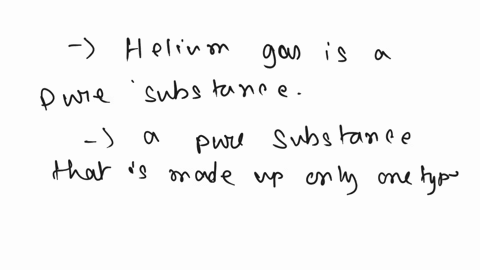 -> Helium gas is a
pure substance.
-> a pure substance
that is made up only one type